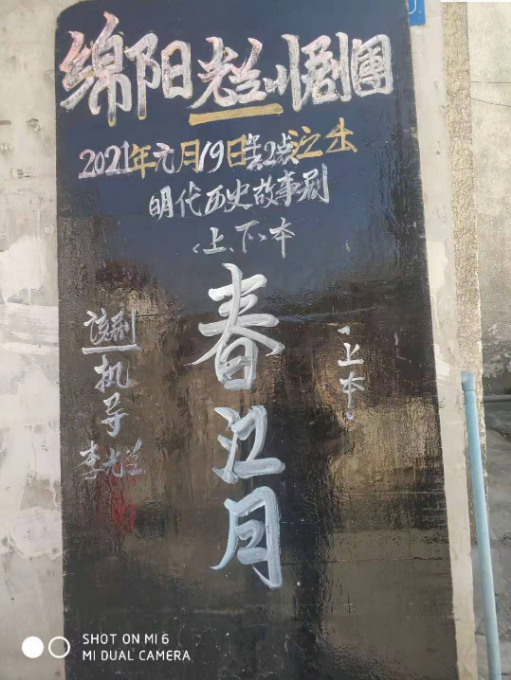 绵阳老兰川剧團
2021年元月19日 2点演出
明代历史故事剧
<上、下>本
春江月
<上本>
该剧
机导
李老兰
SHOT ON MI 6
MI DUAL CAMERA